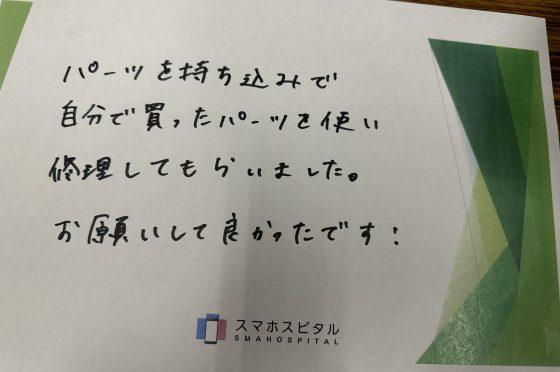 パーツを持ち込みで
自分で買ったパーツを使い
修理してもらいました。
お願いして良かったです!
スマホスピタル
SMAHOSPITAL